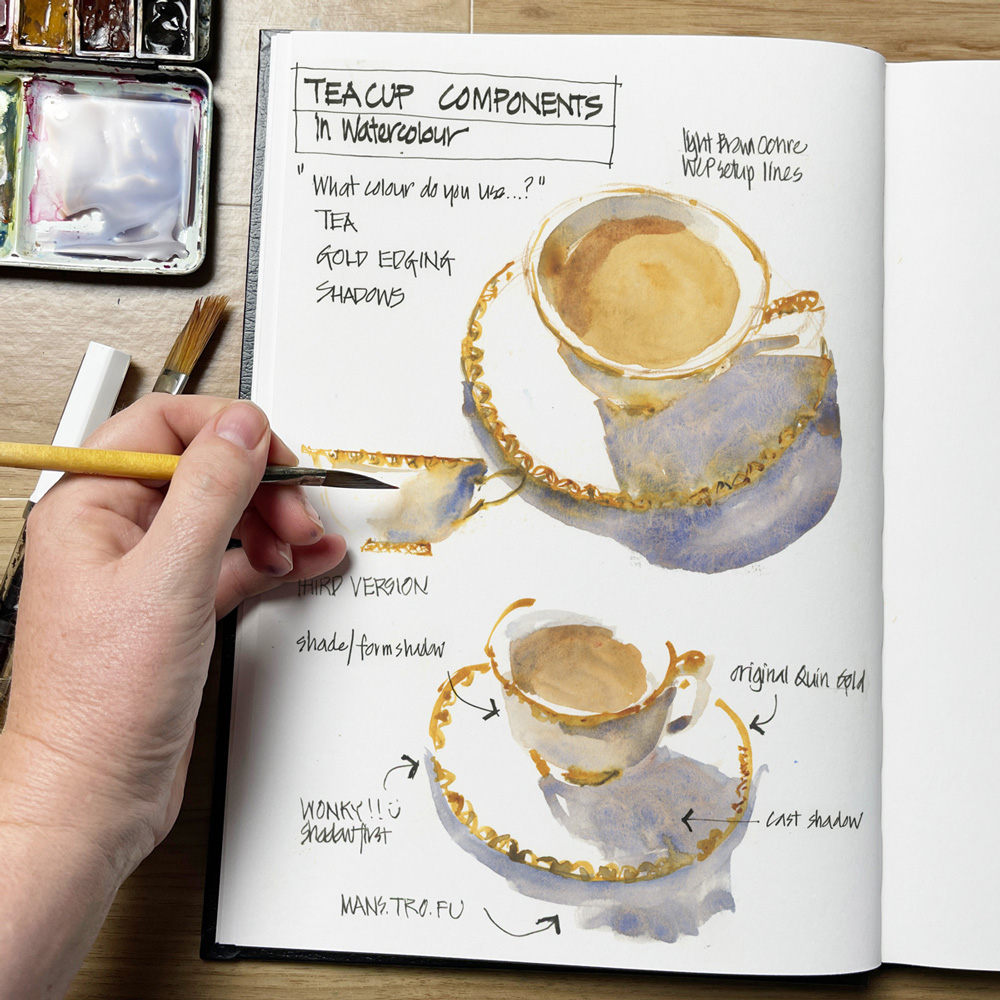 TEACUP COMPONENTS
in Watercolour
light Brown Ochre
WCP setup lines
"What colour do you use...?"
TEA
GOLD EDGING
SHADOWS
THIRD VERSION
shade/form shadow
original Quin Gold
WONKY!!
Shadow first
cast shadow
MANS.TRO.FU